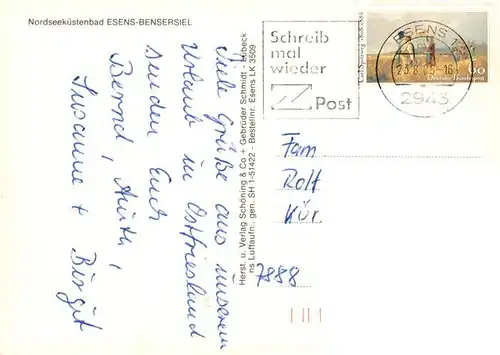 Nordseeküstenbad ESENS-BENSERSIEL
Viele Grüße aus unserem
Urlaub in Ostfriesland
senden Euch
Bernd,
Susanne + Birgit
Herst. u. Verlag Schöning & Co + Gebrüder Schmidt - Lübeck
ns Luftaufn., gen. SH 1-51422 - Bestellnr. Esens LK 3509
Schreib
mal
wieder
Post
ESENS
2943
60
Deutsche Bundespost
Fam
Rolf
Kör.
7888